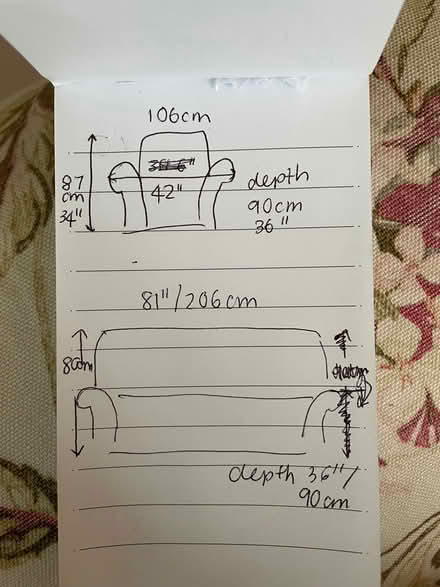 106cm
87
cm
34"
42"
depth
90cm
36"
81"/206cm
80cm
depth 36"/
90cm